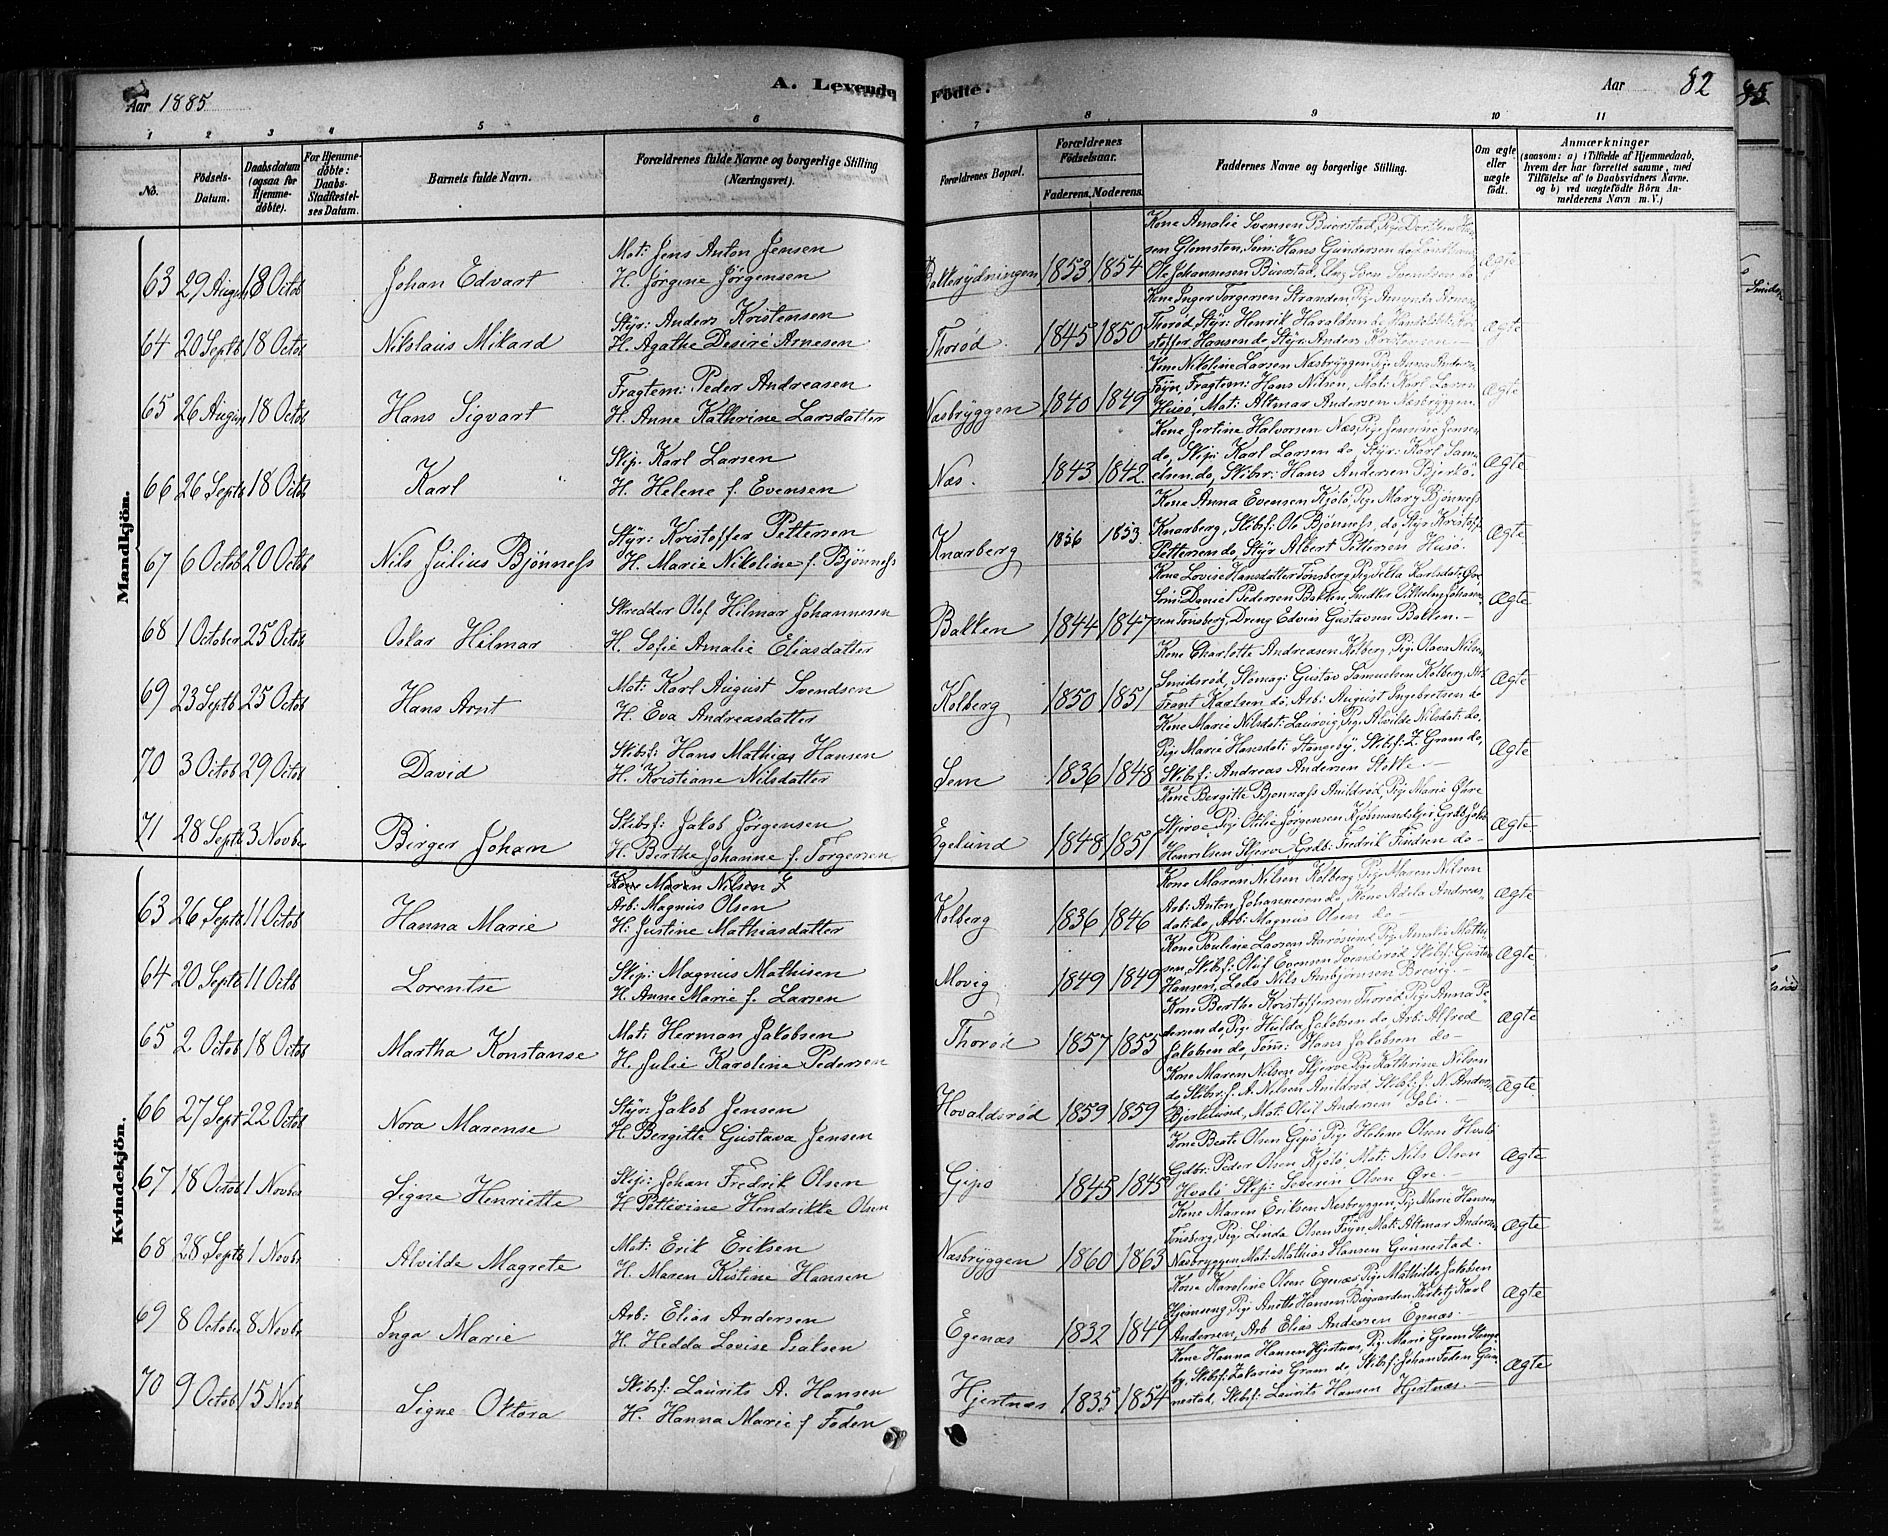 Aar 1885
A. Levende
Fødte.
Aar 82
1 2 3 4 5 6
7 8 9 10 11
No.
Fødsels-Datum.
Daabsdatum (ogsaa for Hjemme-døbte).
For Hjemme-døbte: Daabs-Stadfæstel-ses Datum.
Barnets fulde Navn.
Forældrenes fulde Navne og borgerlige Stilling (Næringsvei).
Forældrenes Bopæl.
Forældrenes Fødselsaar.
Faderens. Moderens.
Faddernes Navne og borgerlige Stilling.
Om ægte eller uægte født.
Anmærkninger
(saasom: a) i Tilfælde af Hjemmedaab, hvem der har forrettet samme, med Tilføielse af to Daabsvidners Navne, og b) ved uægtefødte Børn An-melderens Navn m. V.)
Mandkjön.
63 29 August 18 Octob Johan Edvart
Mat: Jens Anton Jensen
H. Jørgine Jørgensen
Bakkerydningen 1853 1854
Kone Amalie Svensen Buerstad, Pige Dorthea Han-
sen Glomsten, Søm: Hans Gundersen do,
Ole Johannesen Buerstad, Ung Sven Svendsen do
Ægte
64 20 Septb 18 Octob Nikolaus Mikard
Styr: Anders Kristensen
H. Agathe Desire Arnesen
Thorød 1845 1850
Kone Inger Torgersen Stranden, Pige
Thorød, Styr: Henrik Haraldsen do, Kri-
stoffer Hansen do, Styr: Anders Kristensen
Ægte
65 26 August 18 Octob Hans Sigvart
Fragtem: Peder Andreasen
H. Anne Kathrine Larsdatter
Næsbryggen 1840 1849
Kone Nikoline Larsen Næsbryggen, Pige Anna Anders.
Føyn, Fragtem: Hans Nilsen, Mat: Karl Larsen
Husø, Mat: Altmar Andersen Næsbryggen.
Ægte
66 26 Septb 18 Octob Karl
Skip. Karl Larsen
H. Helene f. Evensen
Næs. 1843 1842.
Kone Jertine Halvorsen Næs, Pige Jensine Jensen
do, Skip: Karl Larsen do, Styr: Karl Sam-
elsen do, Skibsr: Hans Andersen Bjerkø.
Ægte
67 6 Octob 20 Octob Nils Julius Bjønness
Styr: Kristoffer Pettersen
H. Marie Nikoline f. Bjønness
Knarberg 1856 1853
Kone Anna Evensen Kjøle, Pige Mary Bjønness
Knarberg, Skibsf: Ole Bjønness, do, Styr Kristoff
Pettersen do, Styr Albert Pettersen Husø.
Ægte
68 1 October 25 Octob Oskar Hilmar
Skredder Olof Hilmar Johannesen
H. Sofie Amalie Eliasdatter
Bakken 1844 1847
Kone Lovise Hansdatter Tønsberg, Pige Karlsdat: Øre
Søm: Daniel Pedersen Bakken, Vilhelm Johanne-
sen Tønsberg, Dreng Edvin Gustavsen Bakken.
Ægte
69 23 Septb 25 Octob Hans Arnt
Mat: Karl August Svendsen
H. Eva Andreasdatter
Kolberg 1850 1851
Kone Charlotte Andreasen Kolberg, Pige Olava Nilsen
Smiderød, Skomag: Gustav Samuelsen Kolberg, Arb:
Frant Karlsen do, Arb: August Ingebretsen do
Ægte
70 3 Octob 29 Octob David
Skibsf: Hans Mathias Hansen
H. Kristiane Nilsdatter
Sem 1836 1848
Kone Marie Nilsdat: Laurvig, Pige Alvilde Nilsdat: do,
Pige Marie Hansdat: Stangeby, Skibsf: Z. Gram do,
Skibsf: Andreas Andersen Stokke.
Ægte
71 28 Septb 3 Novber Birger Johan
Skibsf: Jakob Jørgensen
H. Berthe Johanne f. Torgersen
Egelund 1848 1851
Kone Bergitte Bjønness Anildrød, Pige Marie Øvre
Skjerve, Pige Otilie Jørgensen
Henriksen Skjerve, Grdb: Fredrik Findsen do
Ægte
Kvindekjön.
63 26 Septb 11 Octob Hanna Marie
Kone Maren Nilsen
Arb: Magnus Olsen
H: Justine Mathiasdatter
Kolberg 1836 1846
Kone Maren Nilsen Kolberg, Pige Maren Nilsen
Arb: Anton Johannesen do, Kone Adela Andreas-
dat: do, Arb: Magnus Olsen do
Ægte
64 20 Septb 11 Octb Lorentse
Skip: Magnus Mathisen
H. Anne Marie f. Larsen
Movig 1849 1849
Kone Pauline Larsen Aarøsund, Pige Amalie Mathi-
sen, Skibsf: Oluf Evensen Svenderød, Skibsf: Gustav
Hansen, Lods Nils Anbjørnsen Brevig.
Ægte
65 2 Octob 18 Octob Martha Konstanse
Mat: Herman Jakobsen
H. Julie Karoline Pedersen
Thorød 1857 1855
Kone Berthe Kristoffersen Thorød, Pige Anna Pe-
dersen do, Pige Hulda Jakobsen do, Arb: Alfred
Jakobsen do, Tøm: Hans Jakobsen do
Ægte
66 27 Sept 22 Octob Nora Marense
Styr: Jakob Jensen
H. Bergitte Gustava Jensen
Hovaldsrød 1859 1859
Kone Maren Nilsen Skjerve, Pige Kathrine Nilsen
do, Skibsr. f. A. Nilsen Anildrød, Skibsf. N. Anders.
Bjerkelund, Mat: Oluf Andersen Soli.
Ægte
67 18 Octob 1 Novber Signe Henriette
Skip: Johan Fredrik Olsen
H Petterine Hendrikke Olsen
Gipø 1845 1845
Kone Beate Olsen Gipø, Pige Helene Olsen Hvalø
Gdbr: Peder Olsen Kjøle, Mat: Nils Olsen
Hvalø, Skip: Severin Olsen Øre.
Ægte
68 28 Septb 1 Novbr Alvilde Magrete
Mat: Erik Eriksen
H. Maren Kistine Hansen
Næsbryggen 1860 1863
Kone Maren Eriksen Næsbryggen, Pige Marie Hansen
Tønsberg, Pige Linda Olsen Føyn, Mat: Altmar Anders
Næsbryggen, Mat: Mathias Hansen Gunnestad.
Ægte
69 8 October 8 Novbr Inga Marie
Arb: Elias Andersen
H. Hedda Lovise Isaksen
Egenæs 1832 1849
Kone Karoline Olsen Egenæs, Pige Mathilde Jakobsen
Hjemseng, Pige Anette Hansen Bøgaarden, Karl
Andersen, Arb Elias Andersen Egenæs.
Ægte
70 9 Octob 15 Novb Signe Oktora
Skibsf: Laurits A. Hansen
H. Hanna Marie f Foden
Hjertnæs 1835 1854
Kone Hanna Hansen Hjertnæs, Pige Marie Gram Stange-
by, Skibsf: Zakarias Gram do, Skibsf: Johan Foden Gun-
nestad, Skibsf: Laurits Hansen Hjertnæs.
Ægte